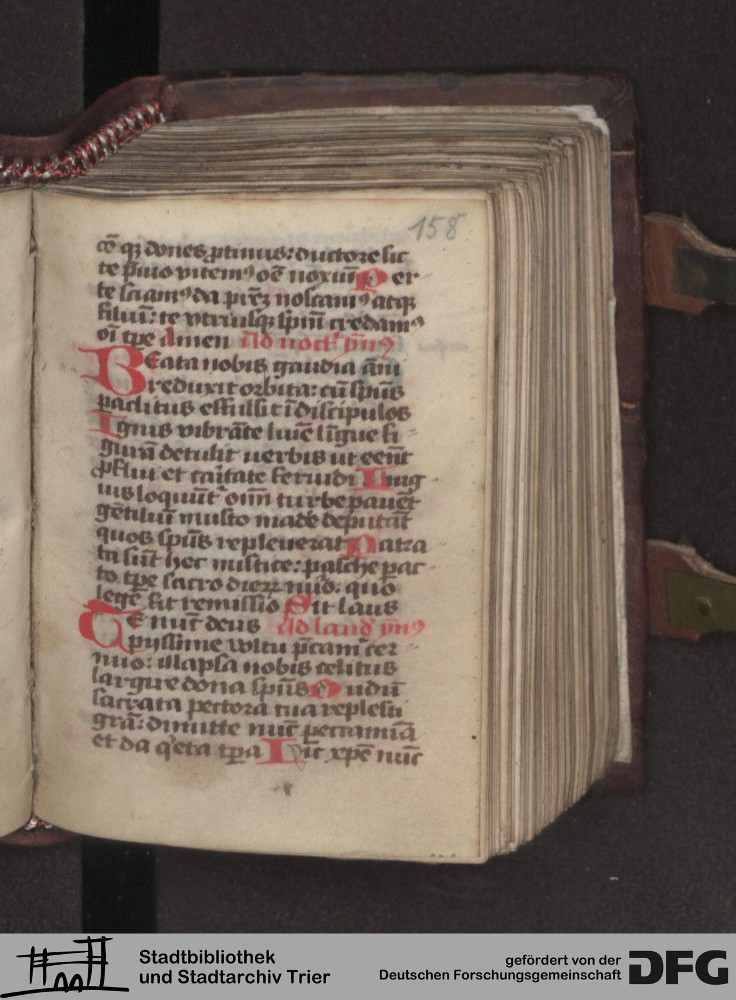 158
cē qꝫ dones ꝓtinus: ductore sic
te p̄uio vitemꝰ oē noxiū Per
te sciamꝰ da prēꝫ noscamꝰ atqꝫ
filiū: te vtriusqꝫ spm̄ credamꝰ
oī tpe Amen Ad noct' ymꝰ
BEata nobis gaudia āni
reduxit orbita: cū spūs
paclitus effulsit ī discipulos
Ignis vibrāte lumē līgue fi
gurā detulit uerbis ut eēnt
ꝓflui et caritate feruidi Ling
uis loquūt' om̄ turbe pauēt
gētiliū musto made deputāt
quos spūs repleuerat Patra
ta sūt hec mistice: pasche ꝑac
to tpe sacro dieꝝ nūo: quo
lege fit remissio Sit laus
TE nūc deus Ad laud' ymꝰ
pijssime vultu p̄camˀ cer
nuo: illapsa nobis celitus
largire dona spūs Dudū
sacrata pectora tua replesti
grā: dimitte nūc peccamīa
et da q'eta tpa Sit xpē nūc
Stadtbibliothek
und Stadtarchiv Trier
gefördert von der
Deutschen Forschungsgemeinschaft
DFG